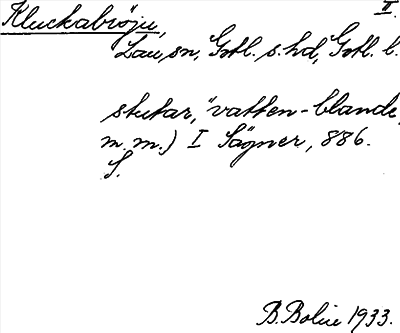 Kluckabröju, II.
Lau sn, Gotl. s. hd, Gotl. l.
stutar, "vatten-blande,
m.m.) I Sägner, 886.
S.
B. Bolin 1933.